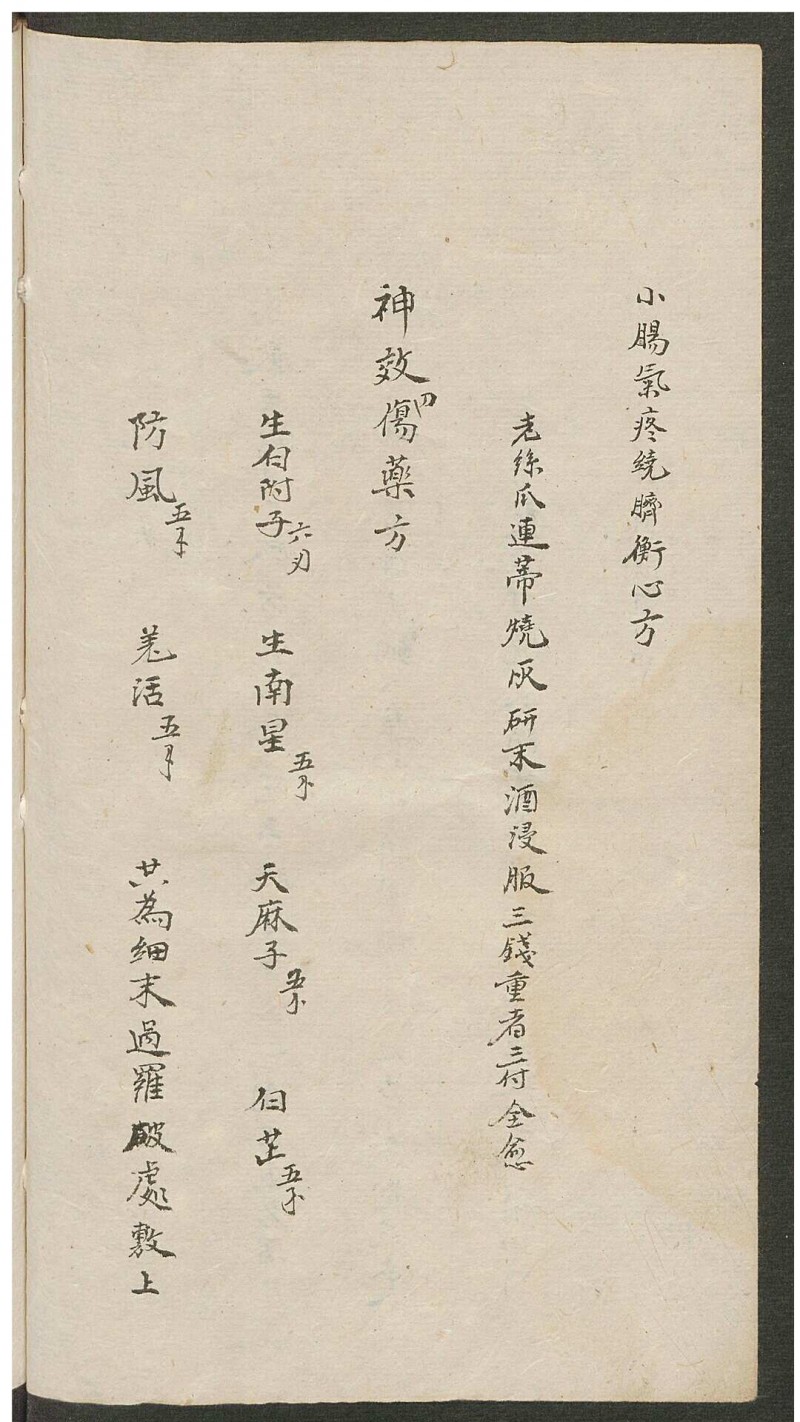 小腸氣疼繞臍衝心方
老絲瓜連蒂燒灰研末酒浸服三錢重者三付全愈
神效刀傷藥方
生白附子六刄 生南星五 天麻子五 白芷五
防風五 羌活五 共為細末過羅破處敷上